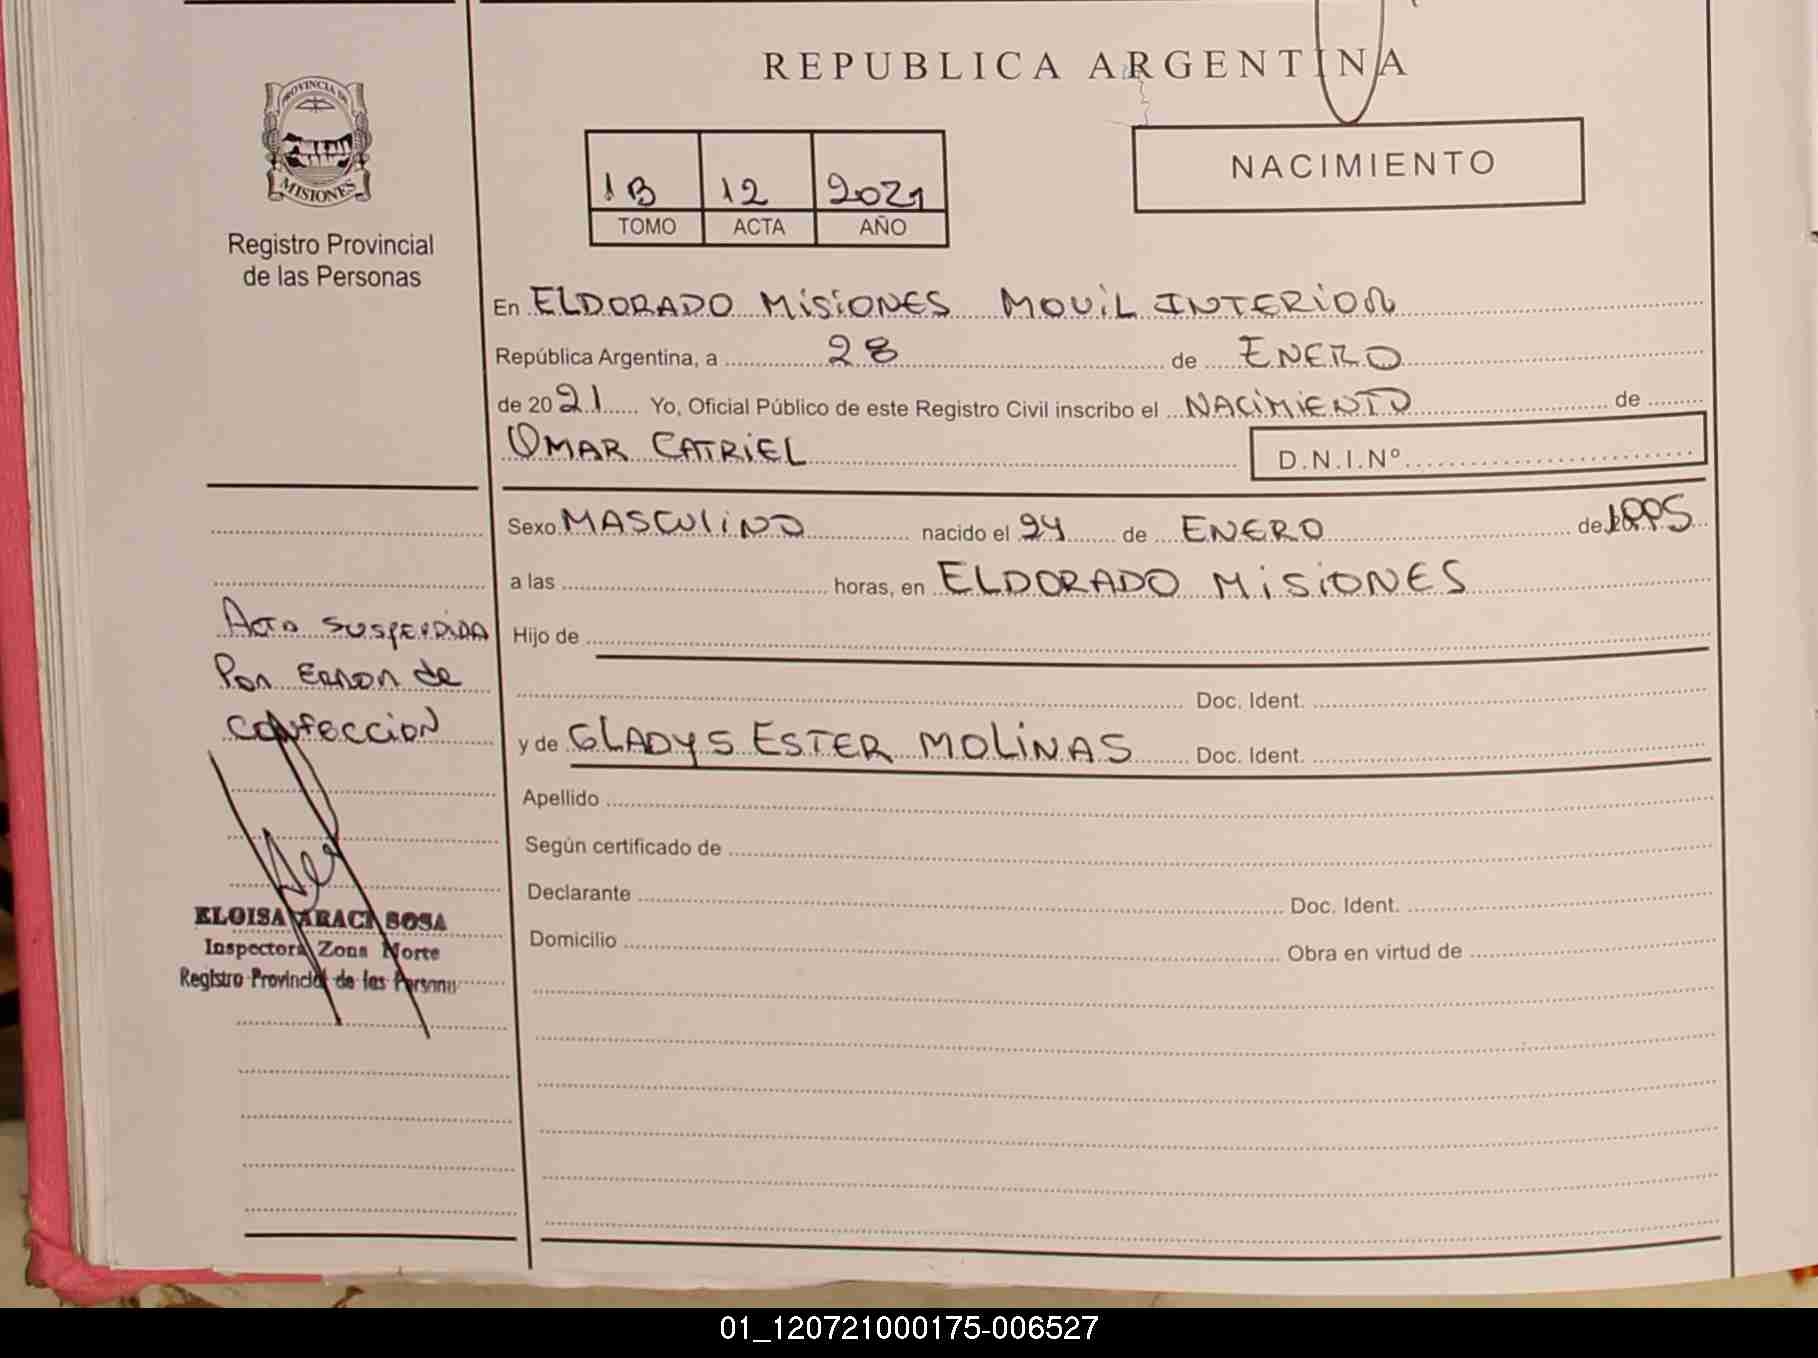 REPUBLICA ARGENTINA
PROVINCIA DE
MISIONES
Registro Provincial
de las Personas
1B 12 2021
TOMO ACTA AÑO
NACIMIENTO
En ELDORADO MISIONES MOVIL INTERIOR
República Argentina, a 28 de ENERO
de 2021 Yo, Oficial Público de este Registro Civil inscribo el NACIMIENTO de
OMAR CATRIEL D.N.I.Nº
Sexo MASCULINO nacido el 24 de ENERO de 1995
a las horas, en ELDORADO MISIONES
Hijo de
Doc. Ident.
y de GLADYS ESTER MOLINAS Doc. Ident.
Apellido
Según certificado de
Declarante Doc. Ident.
Domicilio Obra en virtud de
Acta suspendida
Por Error de
confeccion
ELOISA ARACI SOSA
Inspectora Zona Norte
Registro Provincial de las Persona
01_120721000175-006527